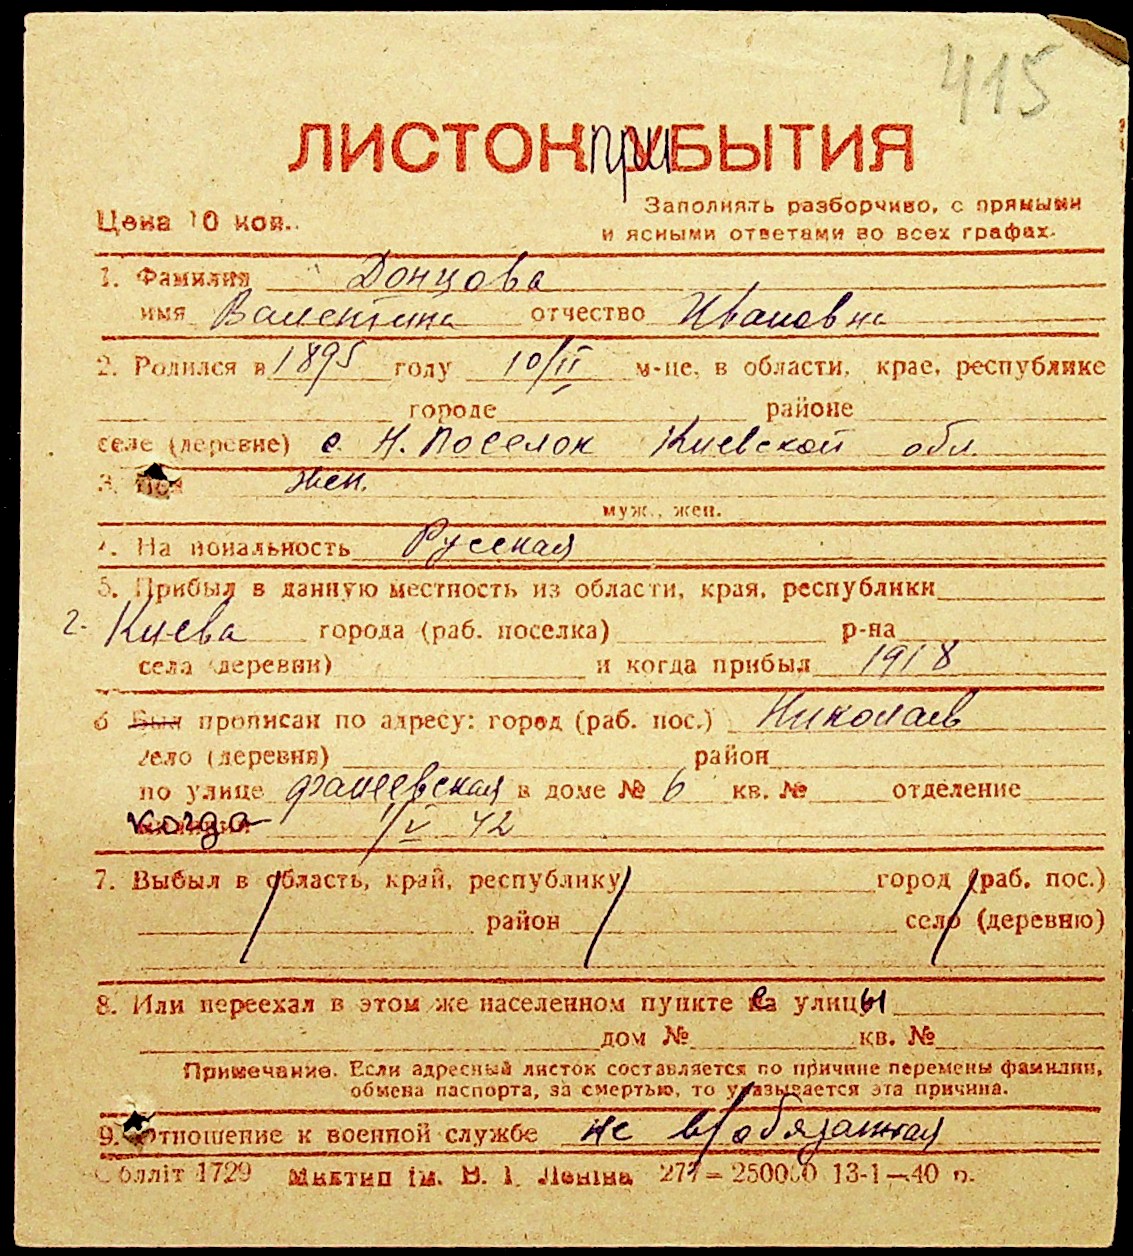 415
ЛИСТОК ПРИБЫТИЯ
Цена 10 коп.
Заполнять разборчиво, с прямыми
и ясными ответами во всех графах.
1. Фамилия Донцова
имя Валентина отчество Ивановна
2. Родился в 1895 году 10/II м-це, в области, крае, республике
городе районе
селе (деревне) с. Н. Поселок Киевской обл.
3. Пол жен.
муж., жен.
4. Национальность Русская
5. Прибыл в данную местность из области, края, республики
г. Киева города (раб. поселка) р-на
села (деревни) и когда прибыл 1918
6 Был прописан по адресу: город (раб. пос.) Николаев
село (деревня) район
по улице в доме № 6 кв. № отделение
когда 1/V 42
7. Выбыл в область, край, республику город (раб. пос.)
район село (деревню)
8. Или переехал в этом же населенном пункте с улицы
дом № кв. №
Примечание. Если адресный листок составляется по причине перемены фамилии,
обмена паспорта, за смертью, то указывается эта причина.
9. Отношение к военной службе не в/обязанная
Облліт 1729 Миктип ім. В. І. Леніна 277 — 250000 13-1—40 р.